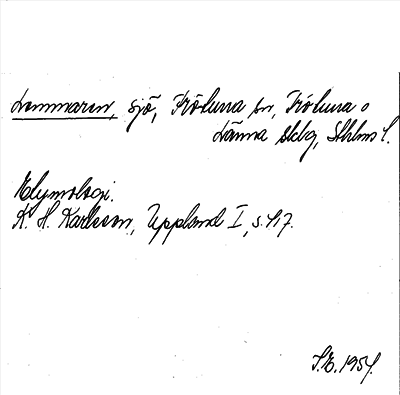 Lommaren, sjö, Frötuna sn, Frötuna o
Länna skbg, Sthlms l.
Etymologi.
K. H. Karlsson, Uppland I, s. 417.
S.E. 1954.